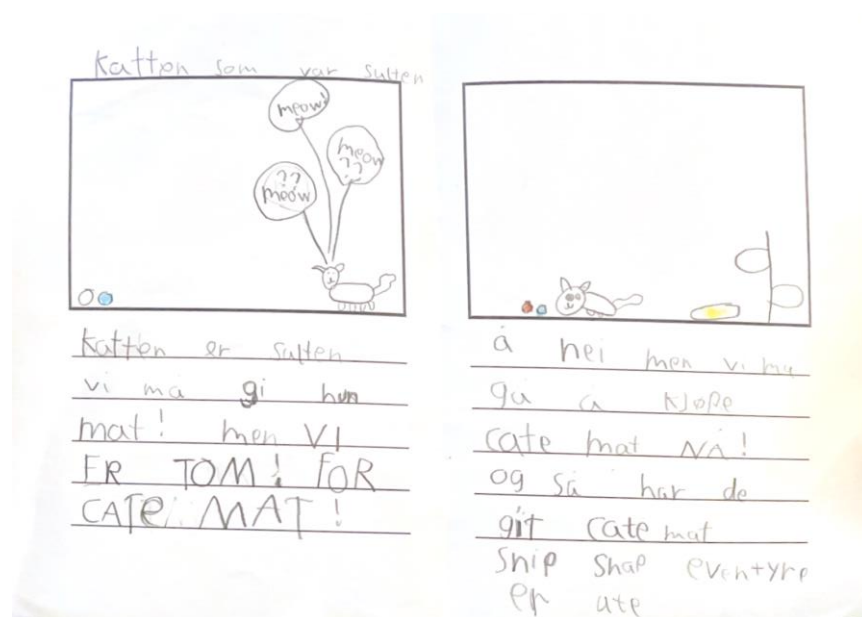 Katten som var sulten
meow!
meow
??
??
meow
Katten er sulten
vi må gi hun
mat! men VI
ER TOM! FOR
CATE MAT!
å nei men vi må
gå å kjøpe
cate mat NÅ!
og så har de
git cate mat
Snip Snap eventyre
er ute